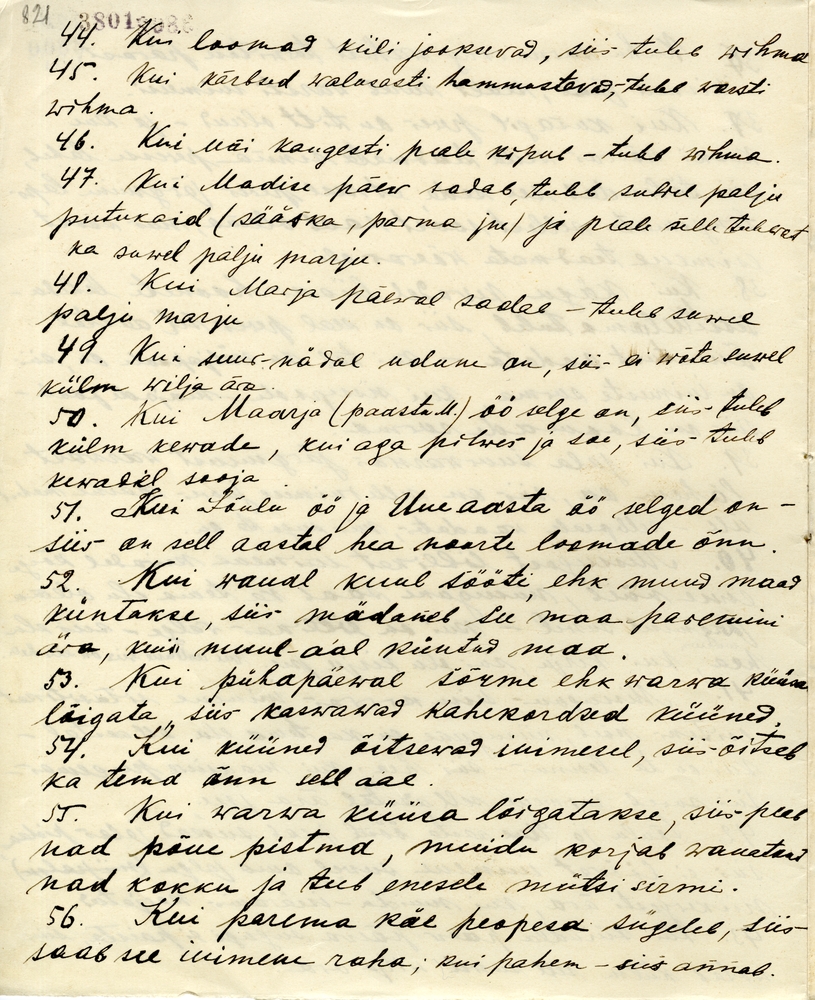 821
44. Kui loomad kiili jooksevad, siis tuleb wihma
45. Kui kärbsed walusasti hammustavad, tuleb warsti
wihma.
46. Kui uni kangesti peale kipub – tuleb wihma.
47. Kui Madise päew sadab, tuleb suwel palju
putukaid (sääska, parma jne) ja peale selle tulewat
ka suwel palju marju.
48. Kui Marja päewal sadab – tuleb suwel
palju marju
49. Kui suur-nädal udune on, siis ei wõta suwel
külm wilja ära.
50. Kui Maarja (paastu M.) öö selge on, siis tuleb
külm kewade, kui aga pilwes ja soe, siis tuleb
kewadel sooja
51. Kui Jõulu öö ja Uue aasta öö selged on –
siis on sell aastal hea noorte loomade õnn.
52. Kui wanal kuul sööti, ehk muud maad
küntakse, siis mädaneb see maa paremini
ära, kuis muul-aal küntud maa.
53. Kui pühapäewal sõrme ehk warwa küüsa
lõigata, siis kaswawad kahekordsed küüned,
54. Kui küüned õitsewad inimesel, siis õitseb
ka tema õnn sell aal.
55. Kui warwa küüsa lõigatakse, siis peab
nad põue pistma, muidu korjab wanatond
nad kokku ja teeb enesele mütsi sirmi.
56. Kui parema käe peopesa sügeleb, siis
saab see inimene raha; kui pahem – siis annab.